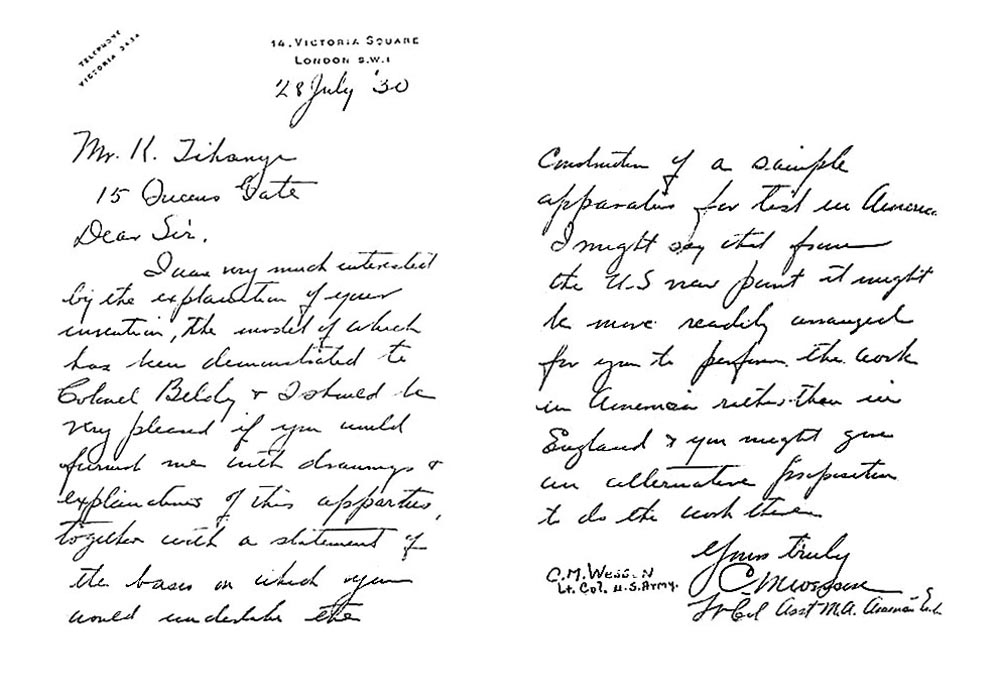 TELEPHONE
VICTORIA 3434
14. VICTORIA SQUARE
LONDON S.W.1
28 July '30
Mr. K. Tihanyi
15 Queens Gate
Dear Sir,
I am very much interested
by the explanation of your
invention, the model of which
has been demonstrated to
Colonel & I should be
very pleased if you would
furnish me with drawings &
explanations of this apparatus,
together with a statement of
the bases on which you
would undertake the
Construction of a sample
apparatus for test in America
I might say that from
the U.S view point it might
be more readily arranged
for you to perform the work
in America rather than in
England & you might give
an alternative proposition
to do the work there
Yours truly
C M Wesson
C.M. WESSON
Lt. Col. U.S. Army.
Lt Col Asst M.A. American